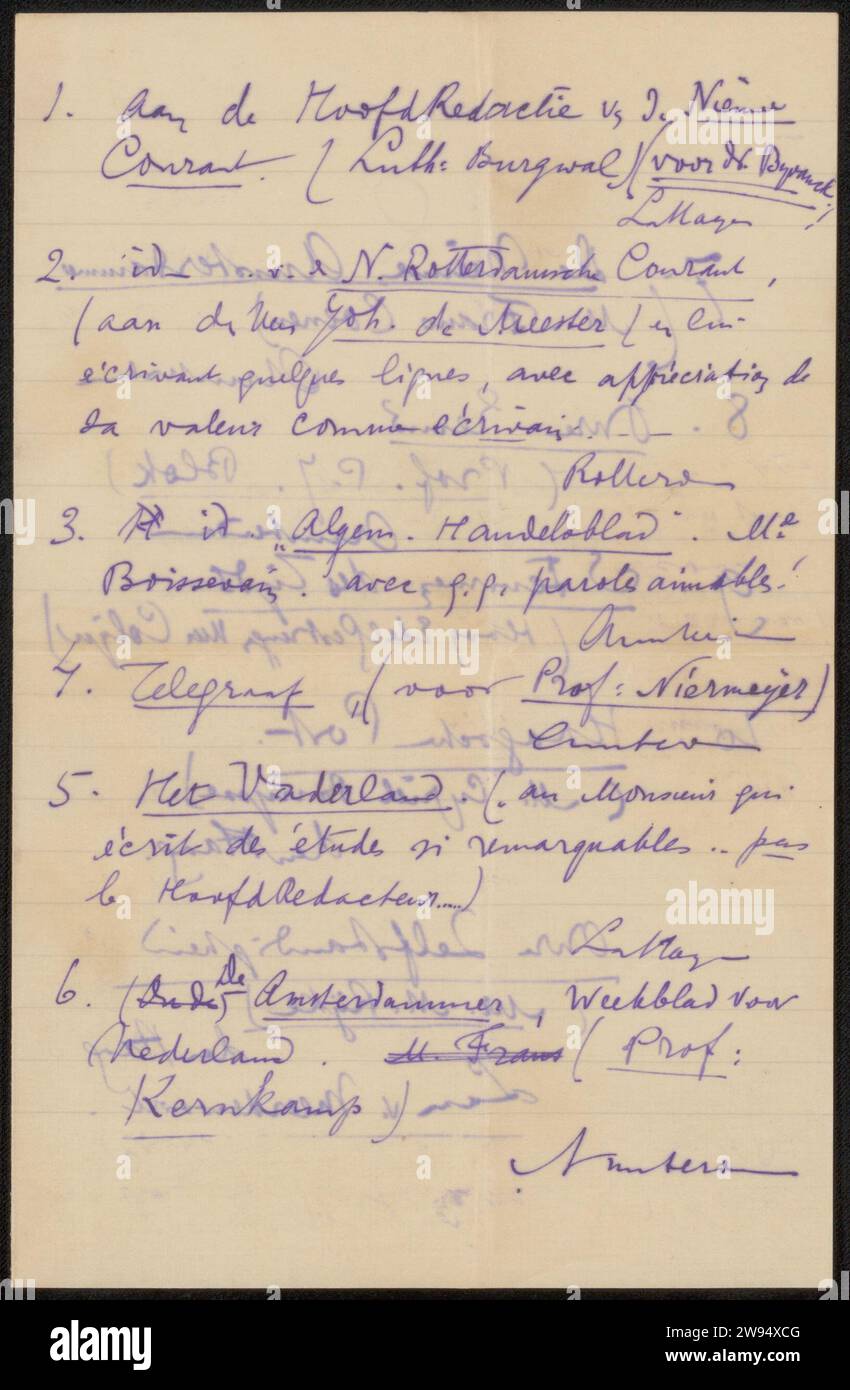 1. Aan de HoofdRedactie v. de Nieuwe
Courant. (Luth: Burgwal) (voor dr. Byvanck!)
La Haye
2. id v. e N. Rotterdamsche Courant,
(aan de Heer Joh. de Meester) en lui
écrivant quelques lignes, avec appréciation de
sa valeur comme écrivain. - - .
Rotterdam
3. id. "Algem. Handelsblad". Mr
Boissevain. avec q.q. paroles aimables!
Amsterdam
4. Telegraaf, (voor Prof: Niermeyer)
Amsterdam
5. Het Vaderland. (au Monsieur qui
écrit des études si remarquables .. pas
le HoofdRedacteur.....)
La Haye
6. (Oude) De Amsterdammer, Weekblad voor
Nederland. M. Frans (Prof:
Kernkamp)
Amsterdam
alamy
Image ID: 2W94XCG
www.alamy.com